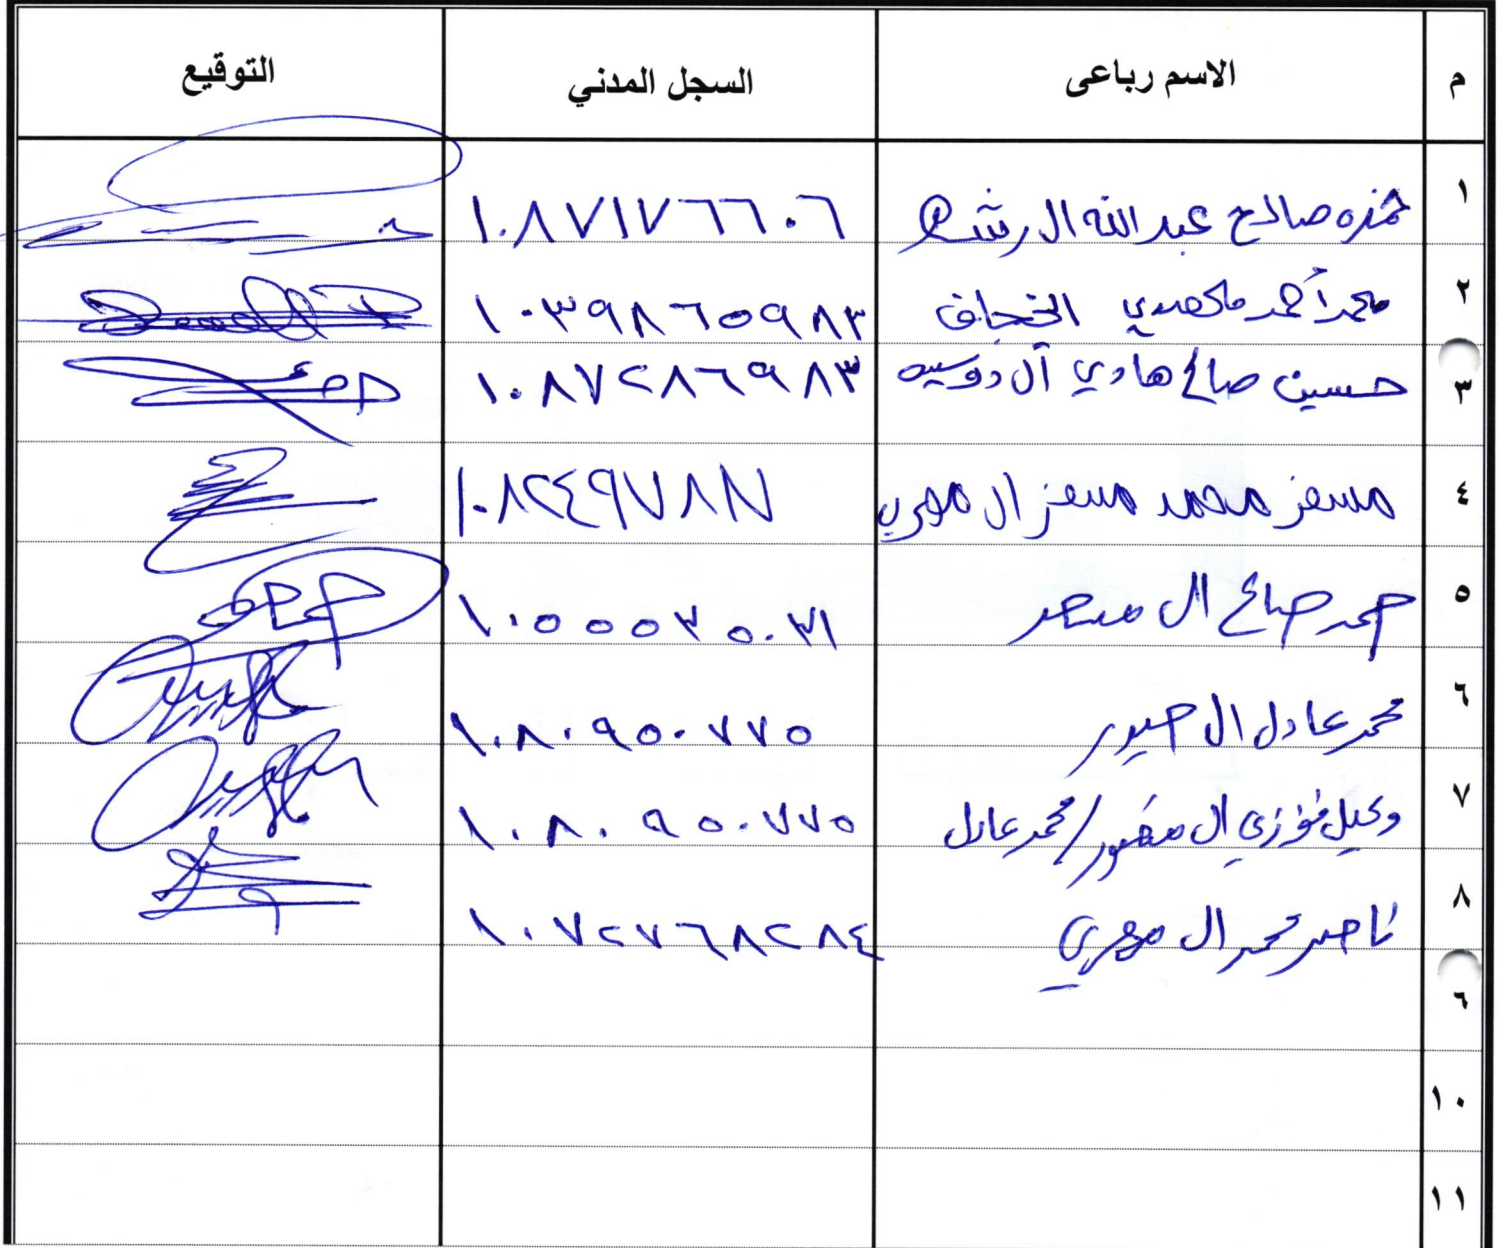 م الاسم رباعى السجل المدني التوقيع
١ حمزه صالح عبدالله ال رشه ١٠٨٧١٧٦٦٠٦
٢ محمد أحمد ١٠٣٩٨٦٥٩٨٣
٣ حسين صالح هادي آل دوسيه ١٠٨٧٢٨٦٩٨٣
٤ مسفر محمد مسفر ال مهري
٥ حمد صالح ال مسعد ١٠٥٥٥٣٥٠٣١
٦ محمد عادل ال ١٠٨٠٩٥٠٧٧٥
٧ وكيل فوزي ال منصور / محمد عادل ١٠٨٠٩٥٠٧٧٥
٨ ناصر محمد ال مهري ١٠٧٢٧٦٨٢٨٤
٦
١٠
١١